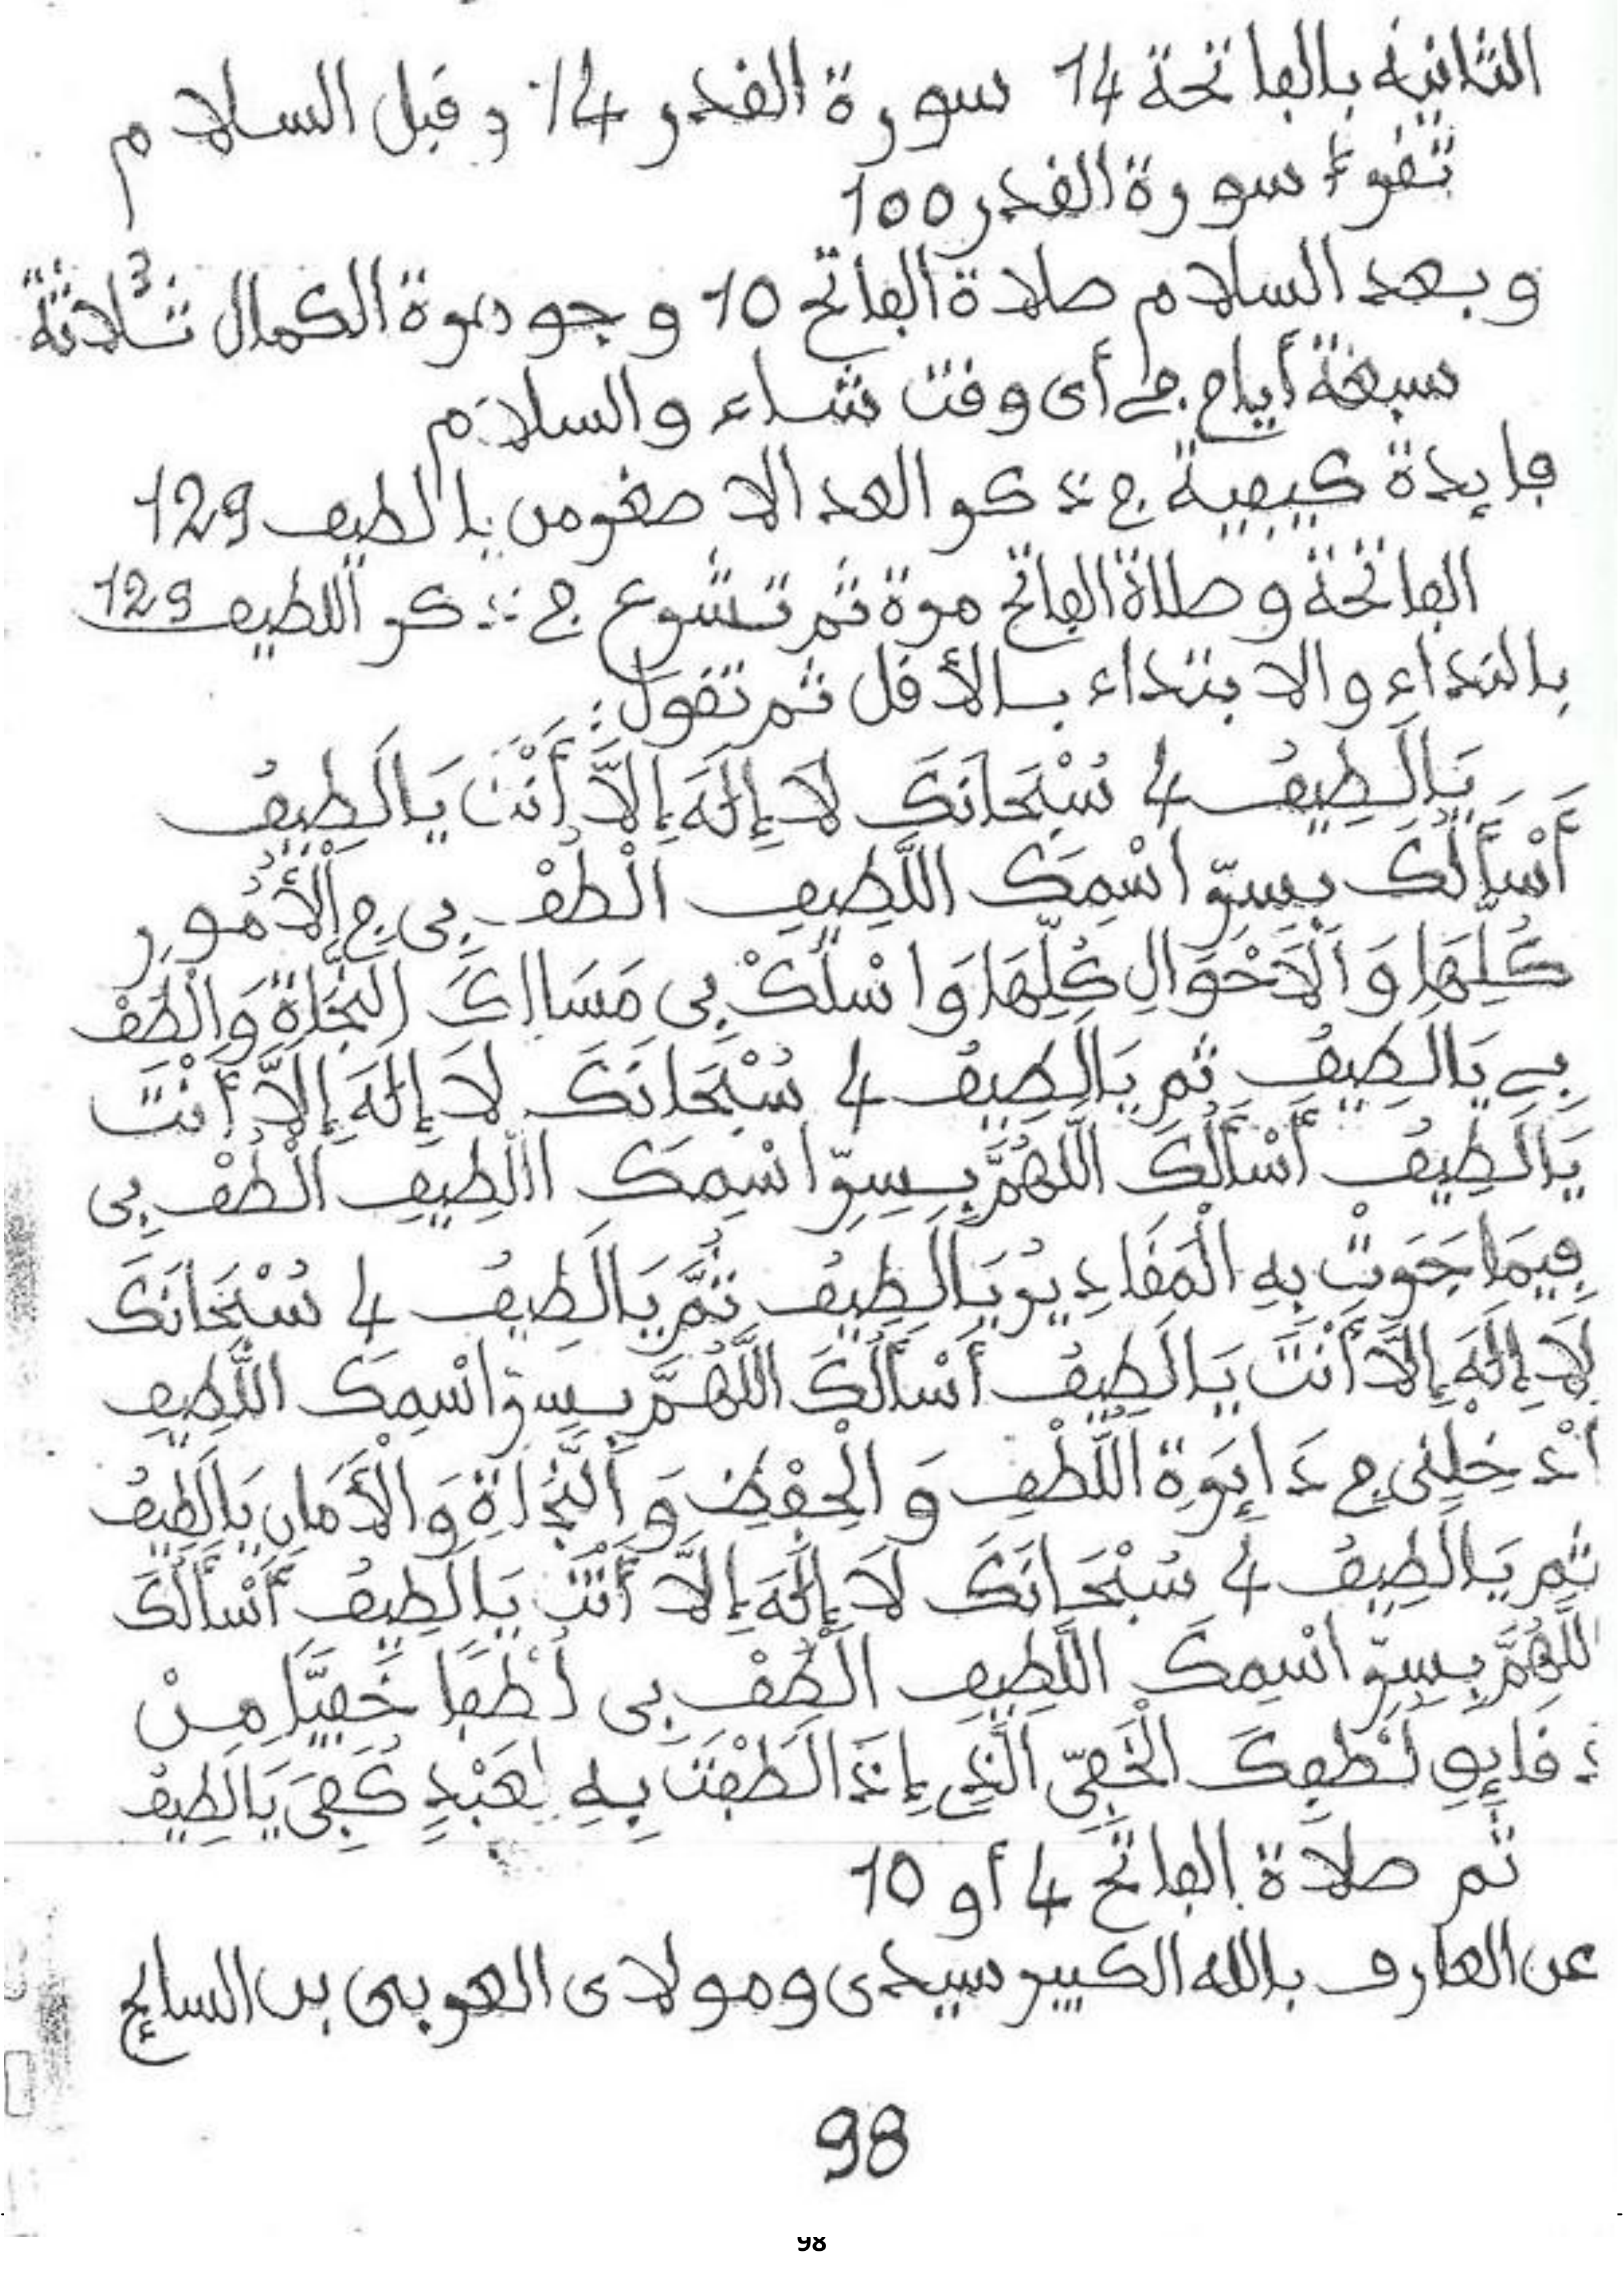 الثانية بالفاتحة 14 سورة القدر 14 وقبل السلام
تقرء سورة القدر 100
وبعد السلام صلاة الفاتح 10 وجوهرة الكمال 3 ثلاثة
سبعة أيام في أي وقت شاء والسلام
فايدة كيفية في ذكر العدد الاصغر من يالطيف 129
الفاتحة وصلاة الفاتح مرة ثم تشرع في ذكر اللطيف 129
بالنداء والابتداء بالأقل ثم تقول:
يَالَطِيفُ 4 سُبْحَانَكَ لَا إِلَهَ إِلَّا أَنْتَ يَالَطِيفُ
أَسْأَلُكَ بِسِرِّ اسْمِكَ اللَّطِيفِ الْطُفْ بِي فِي الْأُمُورِ
كُلِّهَا وَالْأَحْوَالِ كُلِّهَا وَاسْلُكْ بِي مَسَالِكَ النَّجَاةِ وَالْطُفْ
بِي يَالَطِيفُ ثم يَالَطِيفُ 4 سُبْحَانَكَ لَا إِلَهَ إِلَّا أَنْتَ
يَالَطِيفُ أَسْأَلُكَ اللَّهُمَّ بِسِرِّ اسْمِكَ اللَّطِيفِ الْطُفْ بِي
فِيمَا جَرَتْ بِهِ الْمَقَادِيرُ يَالَطِيفُ ثُمَّ يَالَطِيفُ 4 سُبْحَانَكَ
لَا إِلَهَ إِلَّا أَنْتَ يَالَطِيفُ أَسْأَلُكَ اللَّهُمَّ بِسِرِّ اسْمِكَ اللَّطِيفِ
أَدْخِلْنِي فِي دَايِرَةِ اللُّطْفِ وَالْحِفْظِ وَالنَّجَاةِ وَالْأَمَانِ يَالَطِيفُ
ثم يَالَطِيفُ 4 سُبْحَانَكَ لَا إِلَهَ إِلَّا أَنْتَ يَالَطِيفُ أَسْأَلُكَ
اللَّهُمَّ بِسِرِّ اسْمِكَ اللَّطِيفِ الْطُفْ بِي لُطْفًا خَفِيًّا مِنْ
دَقَايِقِ لُطْفِكَ الْخَفِيِّ الَّذِي إِذَا لَطَفْتَ بِهِ لِعَبْدٍ كُفِيَ يَالَطِيفُ
ثم صلاة الفاتح 4 أو 10
عن العارف بالله الكبير سيدي ومولاي العربي بن السايح
98
98